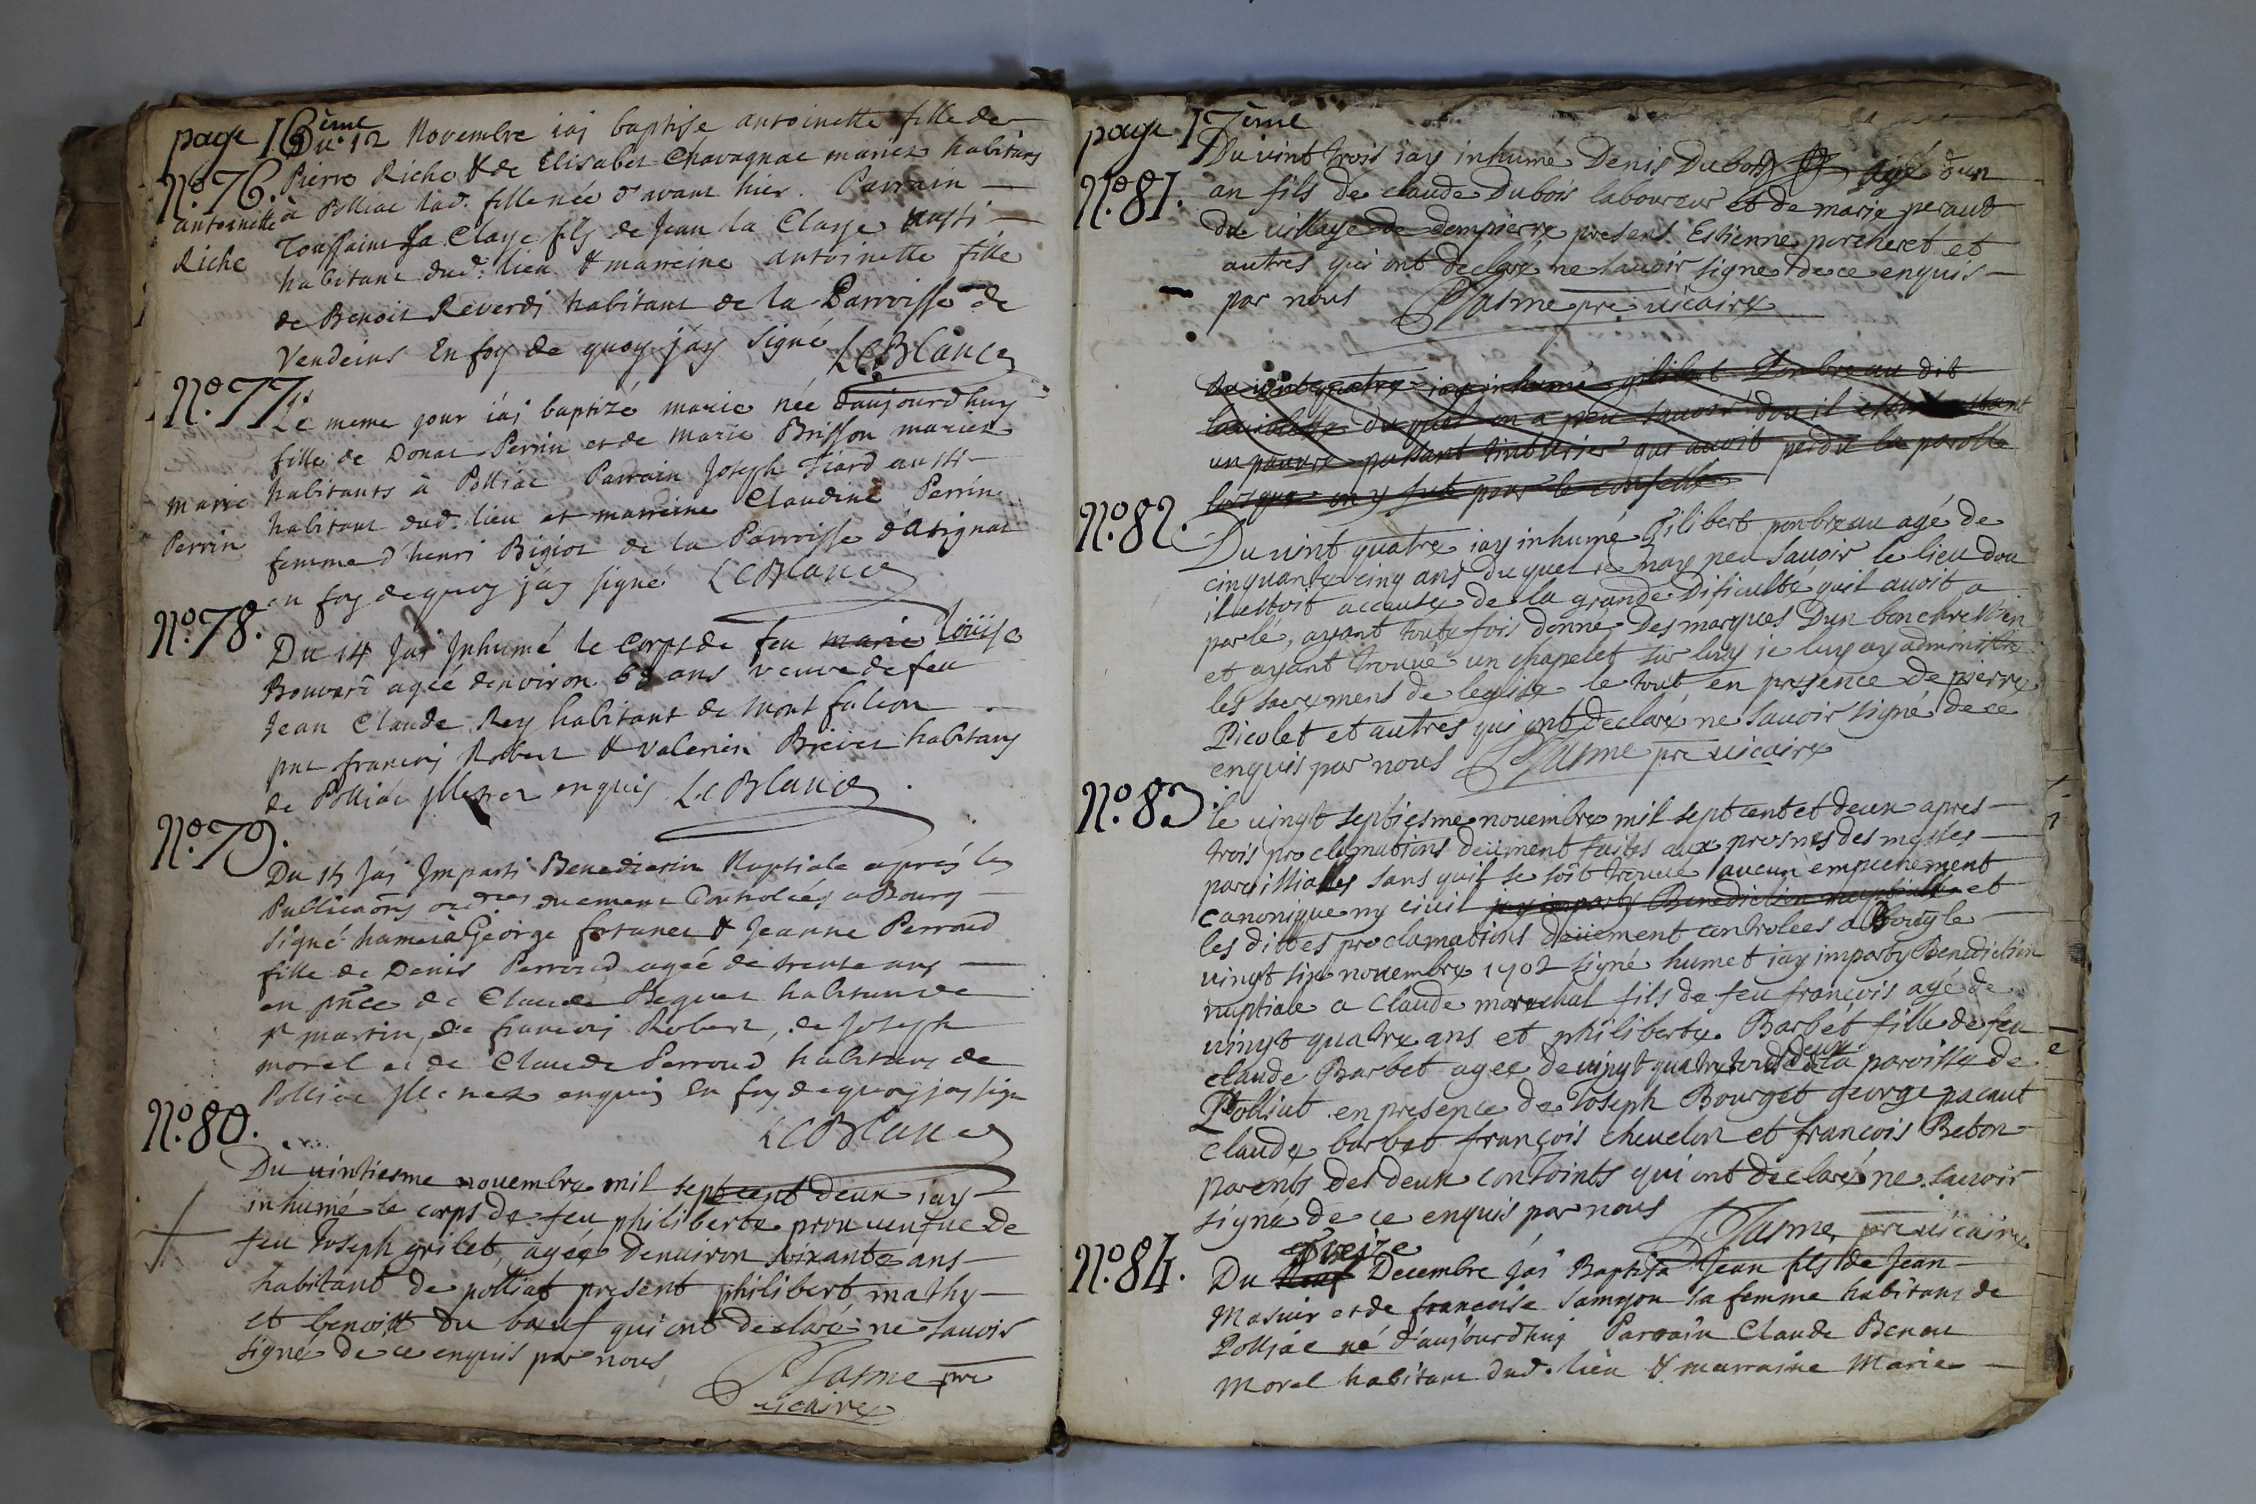 page 16ème
Du 12 Novembre iaj baptise antoinette fille de
No. 76. Pierre Riche & de Elisabet Chavagnac mariez habitans
antoinette à Polliac lad. fille née d'avant hier. Parrain
Riche Toussaint la Claye fils de Jean la Claye aussi
habitant dud. lieu & marreine antoinette fille
de Benoit Reverdi habitant de la Parroisse de
Vendeins En foy de quoy j'ay signé LeBlanc
No. 77. Le meme jour iaj baptizé marie née d'aujourdhuy
fille de Donat Perrin et de marie Brisson mariez
marie habitants à Polliac Parrain Joseph Tiard aussi
habitant dud. lieu et marreine Claudine Perrin
Perrin femme d'henri Bigiot de la Parroisse d'Atignat
en foy de quoy j'ay signé LeBlanc
No. 78. Du 14 Jai Inhumé le corps de feu marie Loüise
Bouvard agée d'environ 68 ans veuve de feu
Jean Claude Rey habitant de Mont falcon
pnt francois Robert & Valentin Brevet habitans
de Polliac Illetrez enquis LeBlanc
No. 79. Du 15 Jai Imparti Benediction Nuptiale aprés les
Publicaons ordres duement Controlées a Bourg
signé hamet à George fortunet & Jeanne Perroud
fille de Denis Perroud agée de trente ans
en pnce de Claude Beguet habitant de
st martin, de francois Robert, de Joseph
morel et de Claude Perroud habitans de
Polliac Illetrez enquis En foy de quoy j'ay signé
LeBlanc
No. 80. Du vintiesme novembre mil sept cent deux iay
inhumé le corps de feu philiberte pron veufue de
feu Joseph grilet, agée denuiron soixante ans
habitant de polliat present philibert mathy
et benoitt du bœuf qui ont declaré ne sauoir
signé de ce enquis par nous
Jasme pre
uicaire
page 17ème
Du vint trois iay inhumé Denis Dubois agé d'un
No. 81. an fils de claude Dubois laboureur et de marie peraut
du village de dompierre present Estienne porcheret et
autres qui ont declaré ne sauoir signé de ce enquis
par nous Jasme pre uicaire
du vint quatre iay inhumé philibert Ponbreau dit
la violette du quel on a peu sauoir dou il estoit estant
un pauvre passant qui auoit perdu la parolle
lorsque on y fut pour le confesser
No. 82. Du vint quatre iay inhumé filibert ponbreau agé de
cinquante cinq ans duquel ie nay peu sauoir le lieu dou
il estoit accause de la grande dificulté quil auoit a
parlé, ayant toute fois donné des marques d'un bon chrestien
et ayant trouué un chapelet sur luy ie luy ay administré
les sacremens de leglise le tout en presence de pierre
Picolet et autres qui ont declaré ne sauoir signé de ce
enquis par nous Jasme pre uicaire
No. 83. le vingt septiesme nouembre mil sept cent et deux apres
trois proclamations deüement faites aux prosnes des messes
paroissialles sans quil se soit trouué aucun empechement
canonique ny civil iay imparty Benediction nuptialle et
les dittes proclamations deüement controlees a bourg le
vingt six nouembre 1702 signé humet iay imparty Benediction
nuptiale a claude marechal fils de feu françois agé de
vingt quatre ans et philiberte Barbet fille de feu
claude Barbet agee de vingt quatre tous deux de la paroisse de
Polliat en presence de Joseph Bourget george pacaut
claude barbet françois cheuelon et francois Bebon
parents des deux conjoints qui ont declaré ne sauoir
signé de ce enquis par nous Jasme pre uicaire
No. 84. Du neuf Treize Decembre j'ai Baptisé Jean fils de Jean
Masuir et de francoise samyon sa femme habitans de
Polliac né d'aujourdhuy Parrain Claude Benon
Morel habitant dud. lieu & marraine Marie